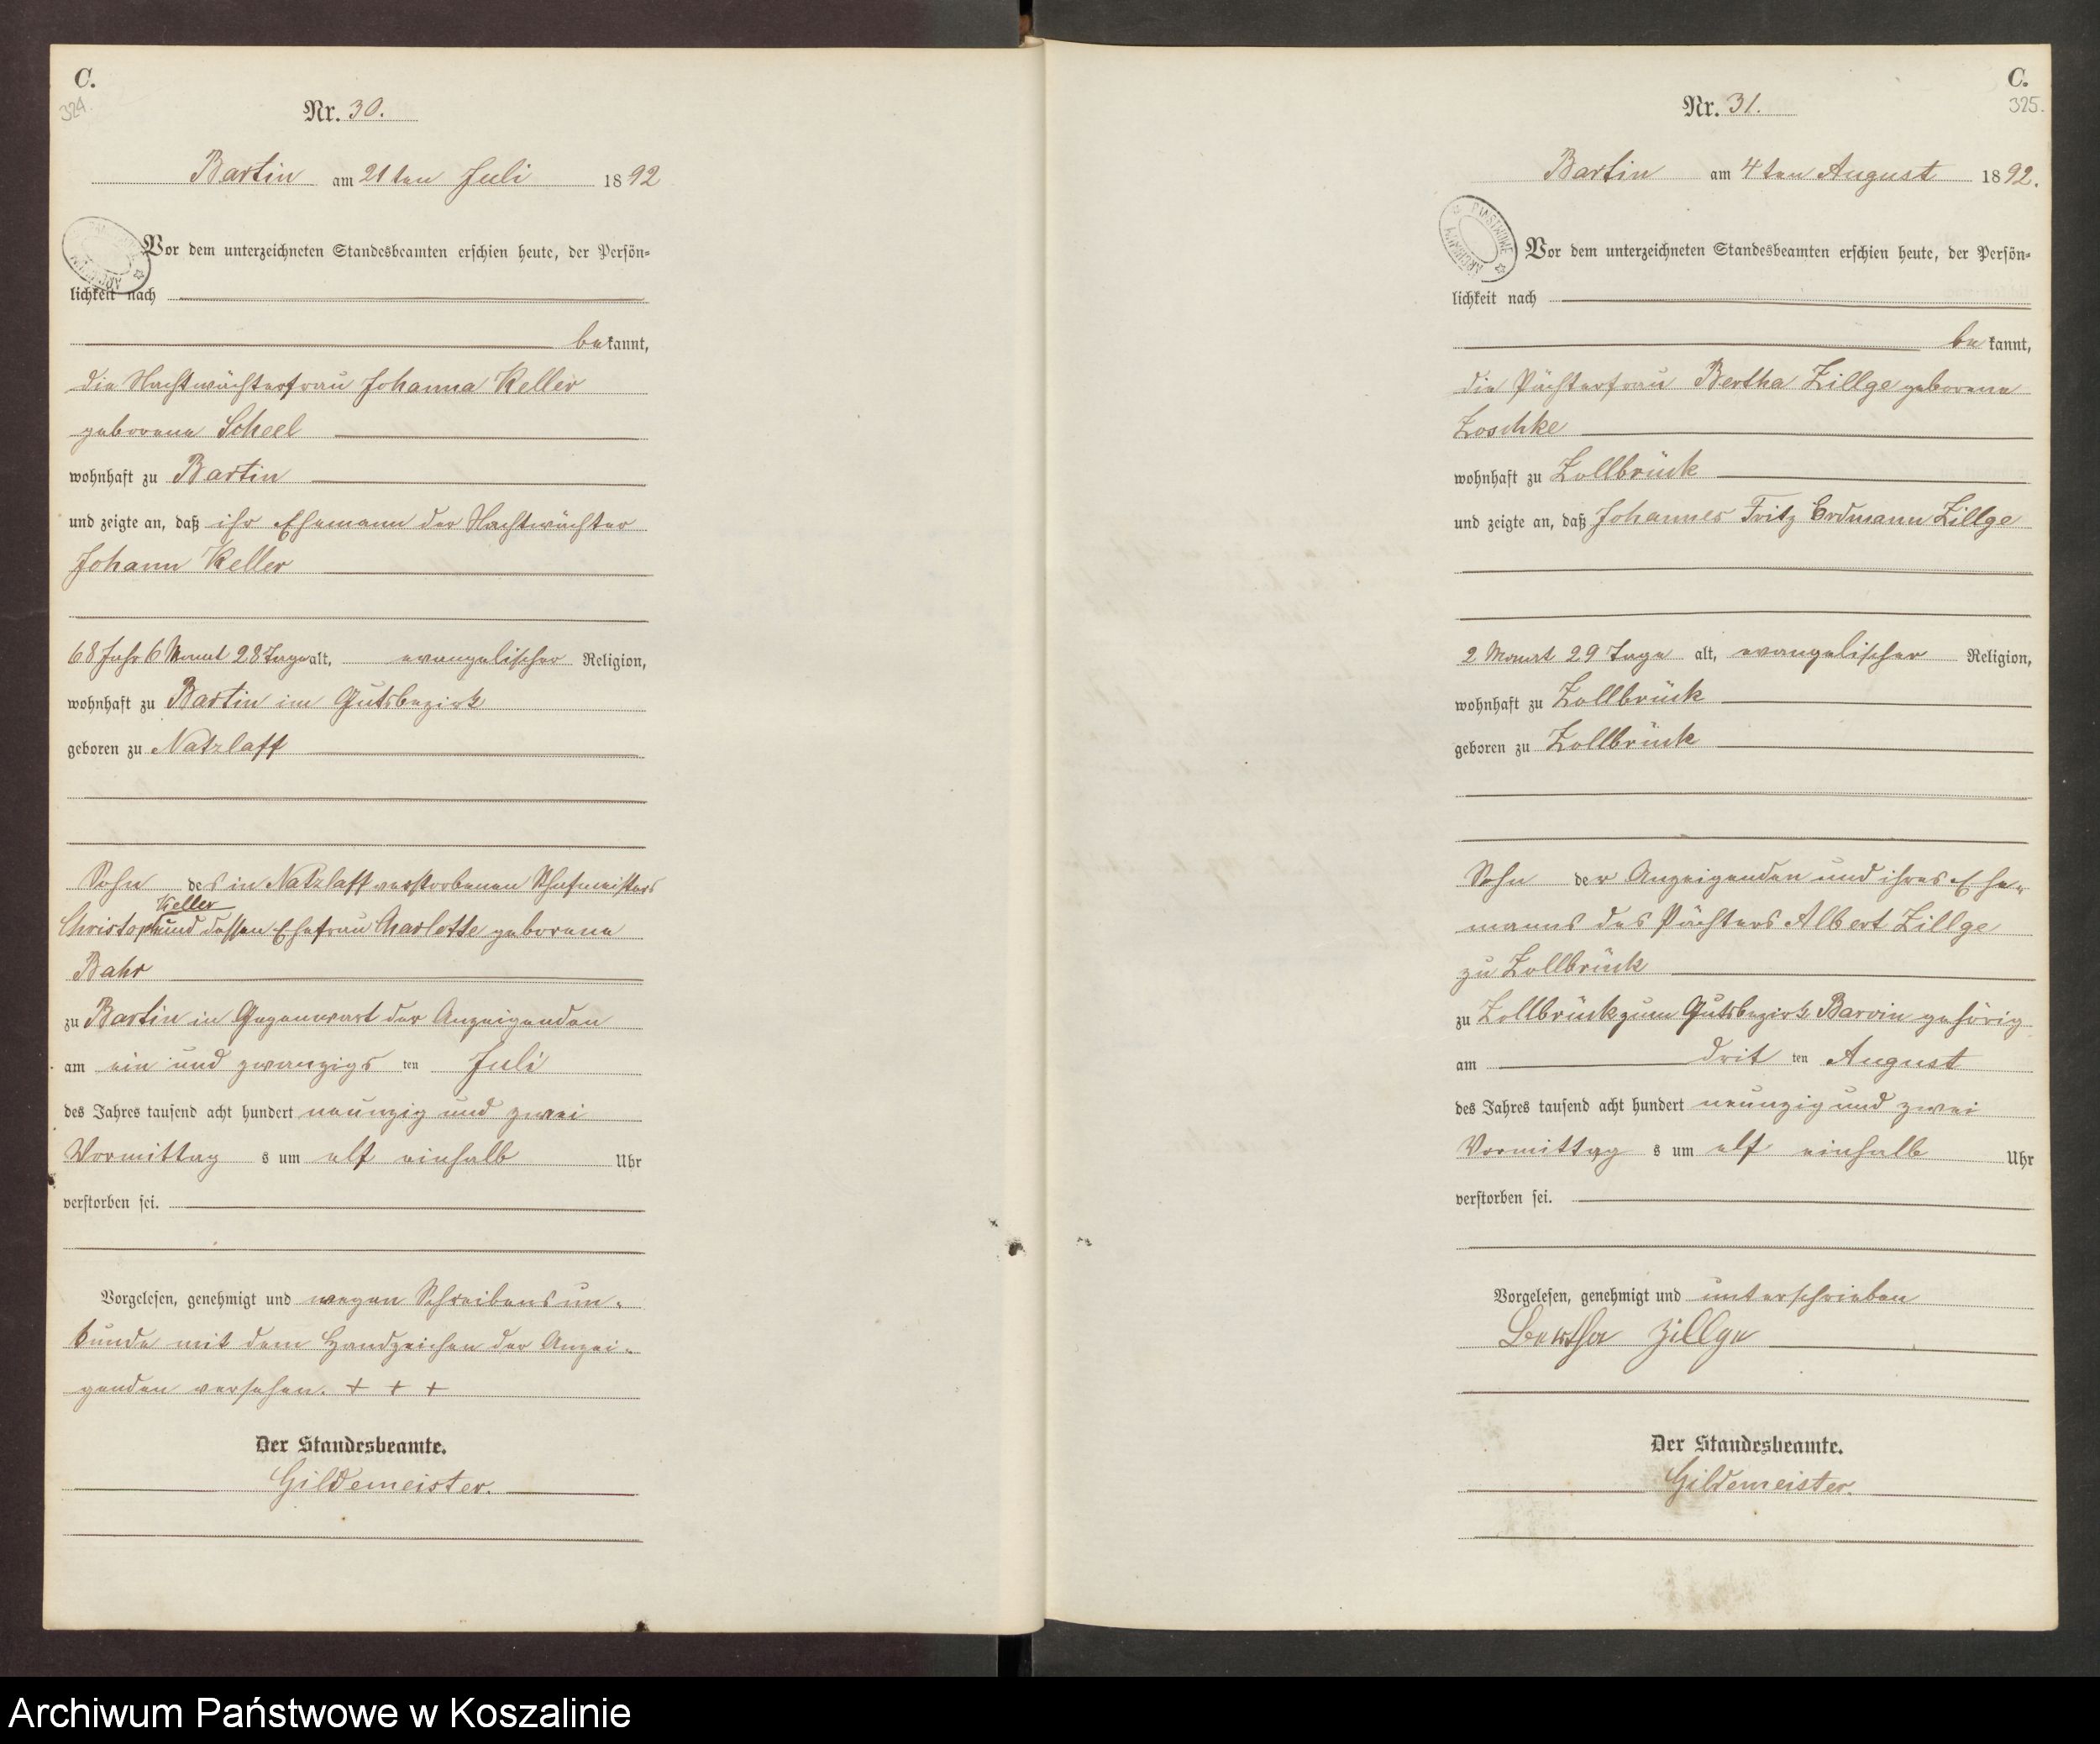 C.
324.
Nr. 30.
Bartin am 21ten Juli 1892
Vor dem unterzeichneten Standesbeamten erschien heute, der Persön=
lichkeit nach
bekannt,
die Nachtwächterfrau Johanna Keller
geborene Scheel
wohnhaft zu Bartin
und zeigte an, daß ihr Ehemann der Nachtwächter
Johann Keller
68 Jahr 6 Monat 28 Tage alt, evangelischer Religion,
wohnhaft zu Bartin im Gutsbezirk
geboren zu Natzlaff
Sohn des in Natzlaff verstorbenen Schafmeisters
Keller
Christoph und dessen Ehefrau Charlotte geborene
Bahr
zu Bartin in Gegenwart der Anzeigenden
am ein und zwanzigs ten Juli
des Jahres tausend acht hundert neunzig und zwei
Vormittag s um elf einhalb Uhr
verstorben sei.
Vorgelesen, genehmigt und wegen Schreibensun-
kunde mit dem Handzeichen der Anzei-
genden versehen. + + +
Der Standesbeamte.
Gildemeister.
C.
325.
Nr. 31.
Bartin am 4ten August 1892.
PAŃSTWOWE
ARCHIWUM
Vor dem unterzeichneten Standesbeamten erschien heute, der Persön=
lichkeit nach
bekannt,
die Pächterfrau Bertha Zillge geborene
Zoschke
wohnhaft zu Zollbrück
und zeigte an, daß Johannes Fritz Erdmann Zillge
2 Monat 29 Tage alt, evangelischer Religion,
wohnhaft zu Zollbrück
geboren zu Zollbrück
Sohn der Anzeigenden und ihres Ehe-
manns des Pächters Albert Zillge
zu Zollbrück
zu Zollbrück zum Gutsbezirk Barvin gehörig
am drit ten August
des Jahres tausend acht hundert neunzig und zwei
Vormittag s um elf einhalb Uhr
verstorben sei.
Vorgelesen, genehmigt und unterschrieben
Bertha Zillge
Der Standesbeamte.
Gildemeister.
Archiwum Państwowe w Koszalinie